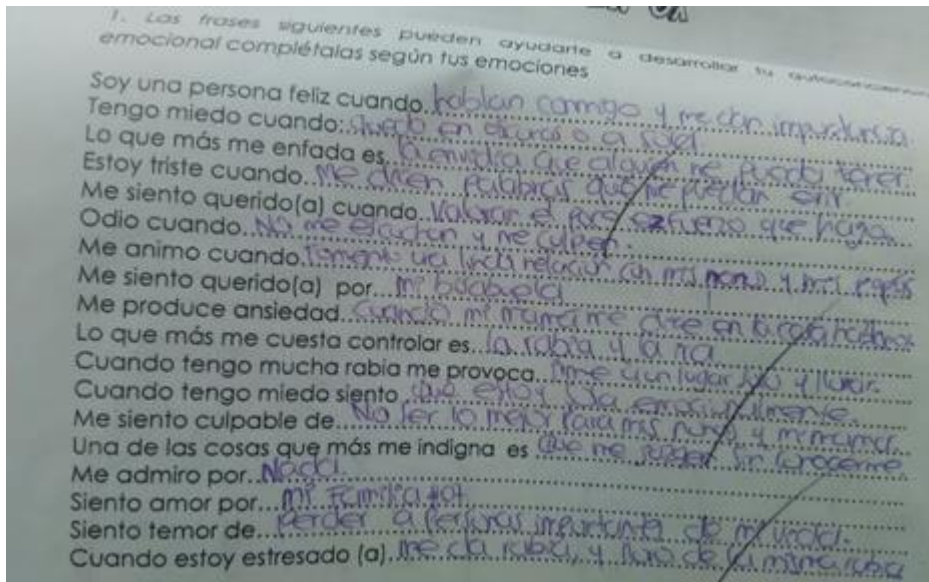 1. Las frases siguientes pueden ayudarte a desarrollar tu
emocional complétalas según tus emociones
Soy una persona feliz cuando hablan conmigo y me dan
Tengo miedo cuando: quedo en o a
Lo que más me enfada es la envidia que alguien me pueda tener.
Estoy triste cuando me dicen palabras que me puedan
Me siento querido(a) cuando Valoran el poco ezfuerzo que haga
Odio cuando No me escuchan y me culpen.
Me animo cuando una linda relación con mis y mis papás
Me siento querido(a) por mi bisabuela
Me produce ansiedad Cuando mi mamá me en la casa
Lo que más me cuesta controlar es la rabia y la ira
Cuando tengo mucha rabia me provoca irme a un lugar solo y llorar.
Cuando tengo miedo siento que estoy sola emocionalmente.
Me siento culpable de No ser lo mejor para mis y mi mamá
Una de las cosas que más me indigna es Que me juzguen sin conocerme
Me admiro por Nada
Siento amor por mi Familia
Siento temor de perder a personas importantes de mi vida.
Cuando estoy estresado (a) me da rabia, y lloro de la misma rabia